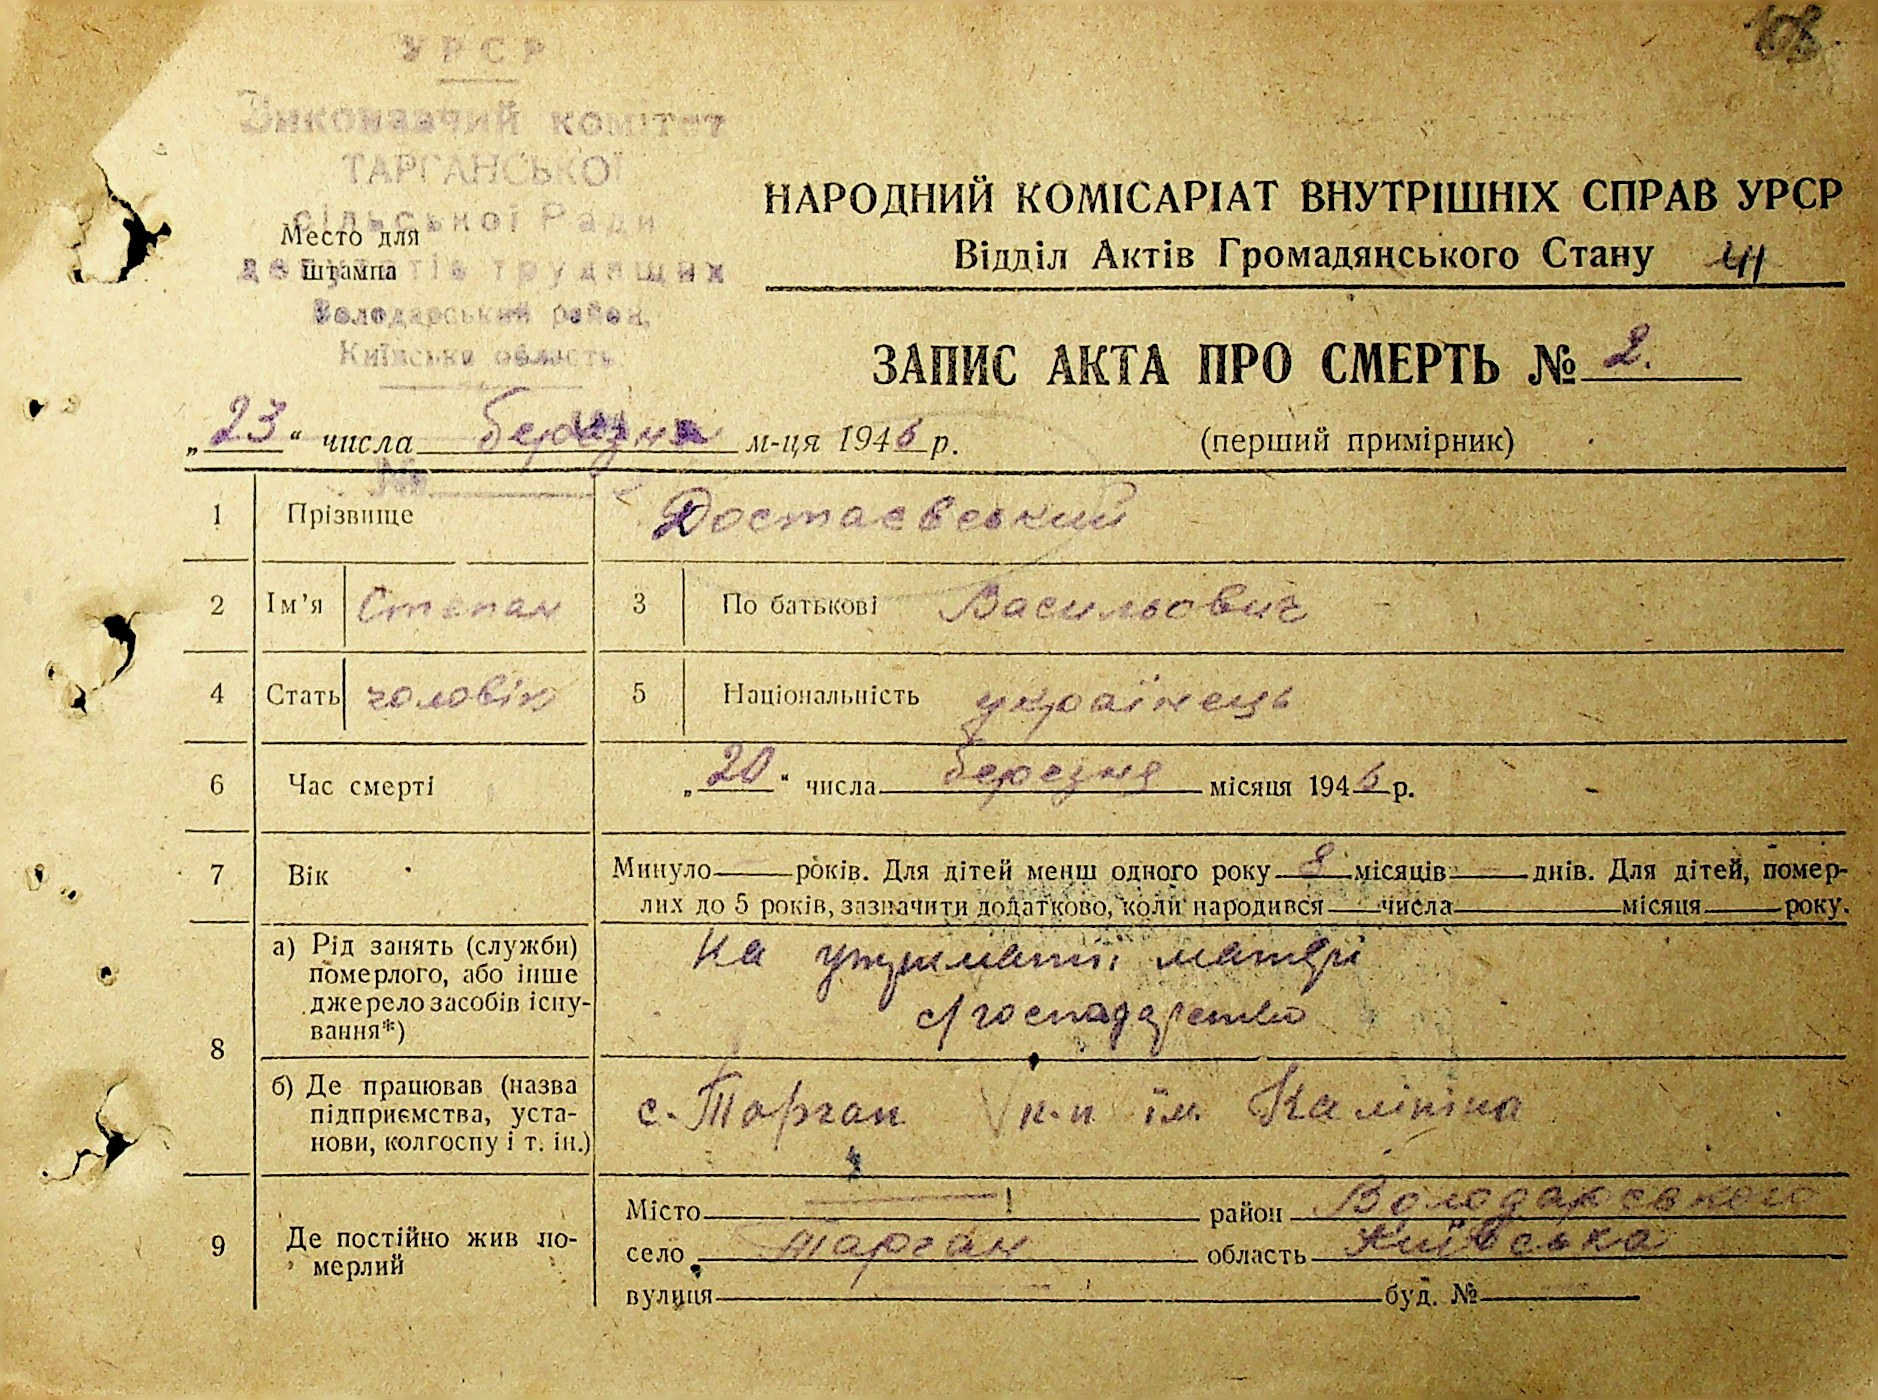 УРСР
Виконавчий комітет
ТАРГАНСЬКОЇ
сільської Ради
депутатів трудящих
Володарський район,
Київська область
Место для
штампа
НАРОДНИЙ КОМІСАРІАТ ВНУТРІШНІХ СПРАВ УРСР
Відділ Актів Громадянського Стану
ЗАПИС АКТА ПРО СМЕРТЬ № 2.
„23“ числа березня м-ця 1946 р.
(перший примірник)
№
1 Прізвище Достаєвський
2 Ім’я Степан 3 По батькові Васильович
4 Стать чоловік 5 Національність українець
6 Час смерті „20“ числа березня місяця 1946 р.
7 Вік Минуло — років. Для дітей менш одного року 8 місяців — днів. Для дітей, помер-
лих до 5 років, зазначити додатково, коли народився — числа — місяця — року.
8 а) Рід занять (служби)
померлого, або інше
джерело засобів існу-
вання*)
на утриманні матері
с/господарство
б) Де працював (назва
підприємства, уста-
нови, колгоспу і т. ін.)
с. Тарган к-п ім. Калініна
9 Де постійно жив по-
мерлий
Місто — район Володарського
село Тарган область Київська
вулиця — буд. № —